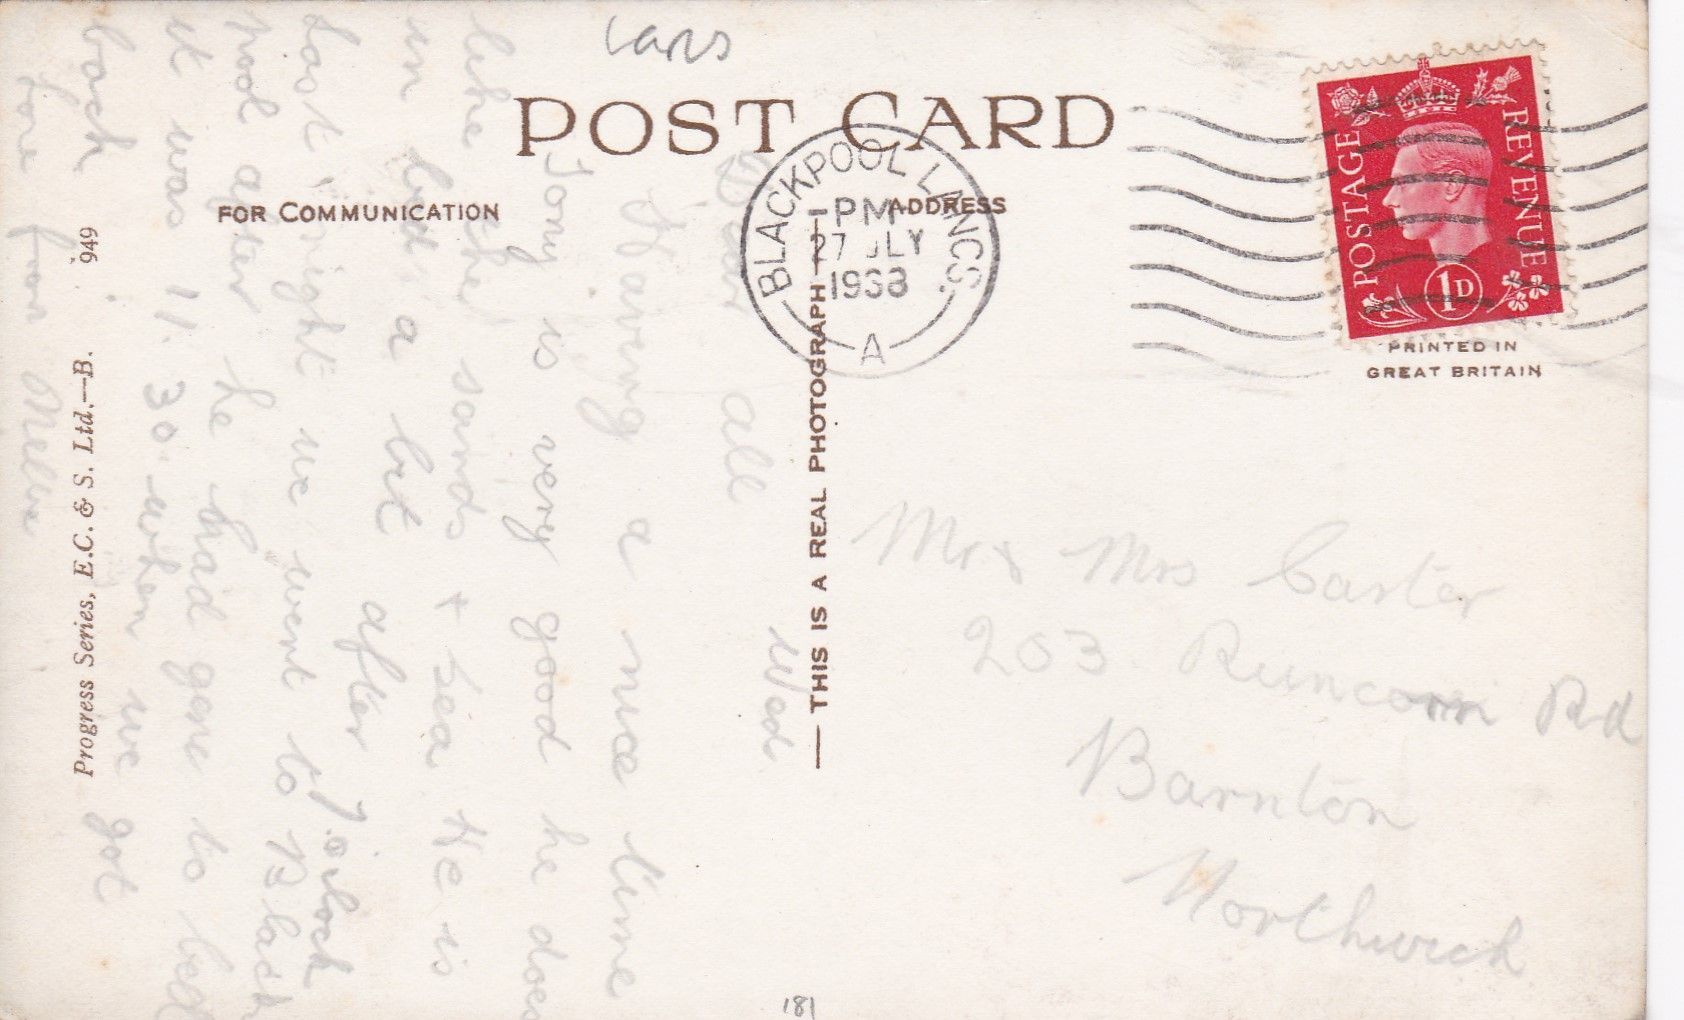 Lancs
POST CARD
FOR COMMUNICATION
ADDRESS
BLACKPOOL LANCS.
1 PM
27 JLY
1938
A
POSTAGE
REVENUE
1D
PRINTED IN
GREAT BRITAIN
— THIS IS A REAL PHOTOGRAPH —
Progress Series, E.C. & S. Ltd.—B. 949
Wed
Dear all
Having a nice time
Tony is very good he does
like the sands + sea He is
in bed a bit after 7 o'clock
Last night we went to Black
pool after he had gone to bed
it was 11.30 when we got
back
Love from Nellie
Mr & Mrs Carter
203 Runcorn Rd
Barnton
Northwich
181